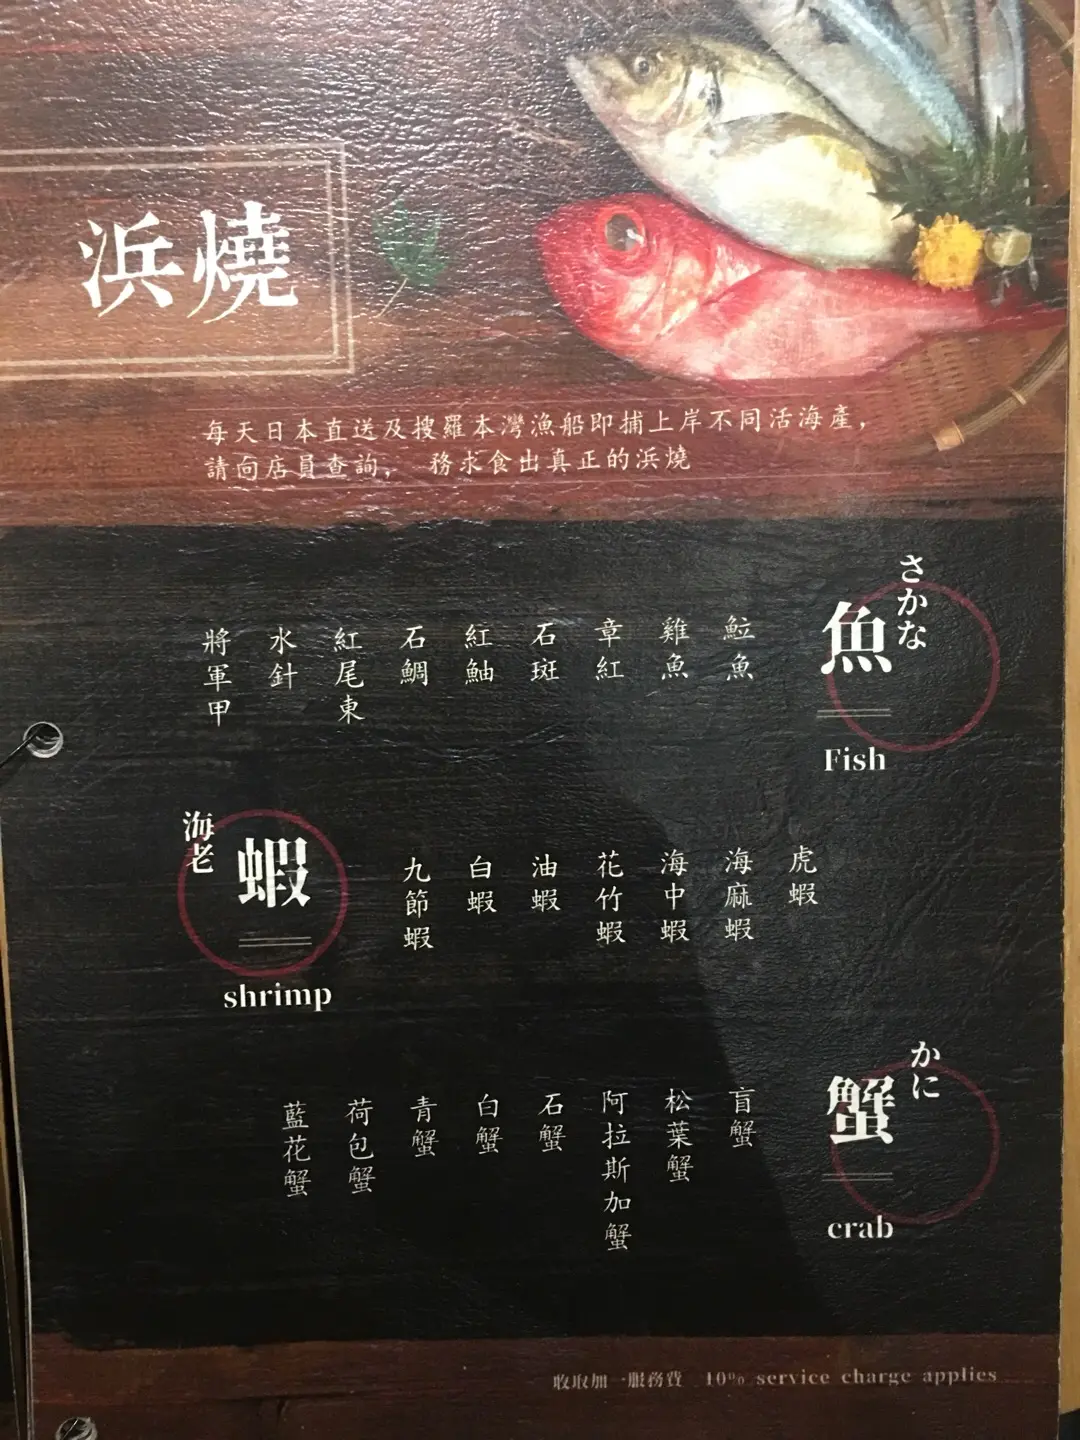 浜燒
每天日本直送及搜羅本灣漁船即捕上岸不同活海產，
請向店員查詢， 務求食出真正的浜燒
さかな
魚
Fish
䱽魚
雞魚
章紅
石斑
紅鮋
石鯛
紅尾東
水針
將軍甲
海老
蝦
shrimp
虎蝦
海麻蝦
海中蝦
花竹蝦
油蝦
白蝦
九節蝦
かに
蟹
crab
盲蟹
松葉蟹
阿拉斯加蟹
石蟹
白蟹
青蟹
荷包蟹
藍花蟹
收取加一服務費 10% service charge applies